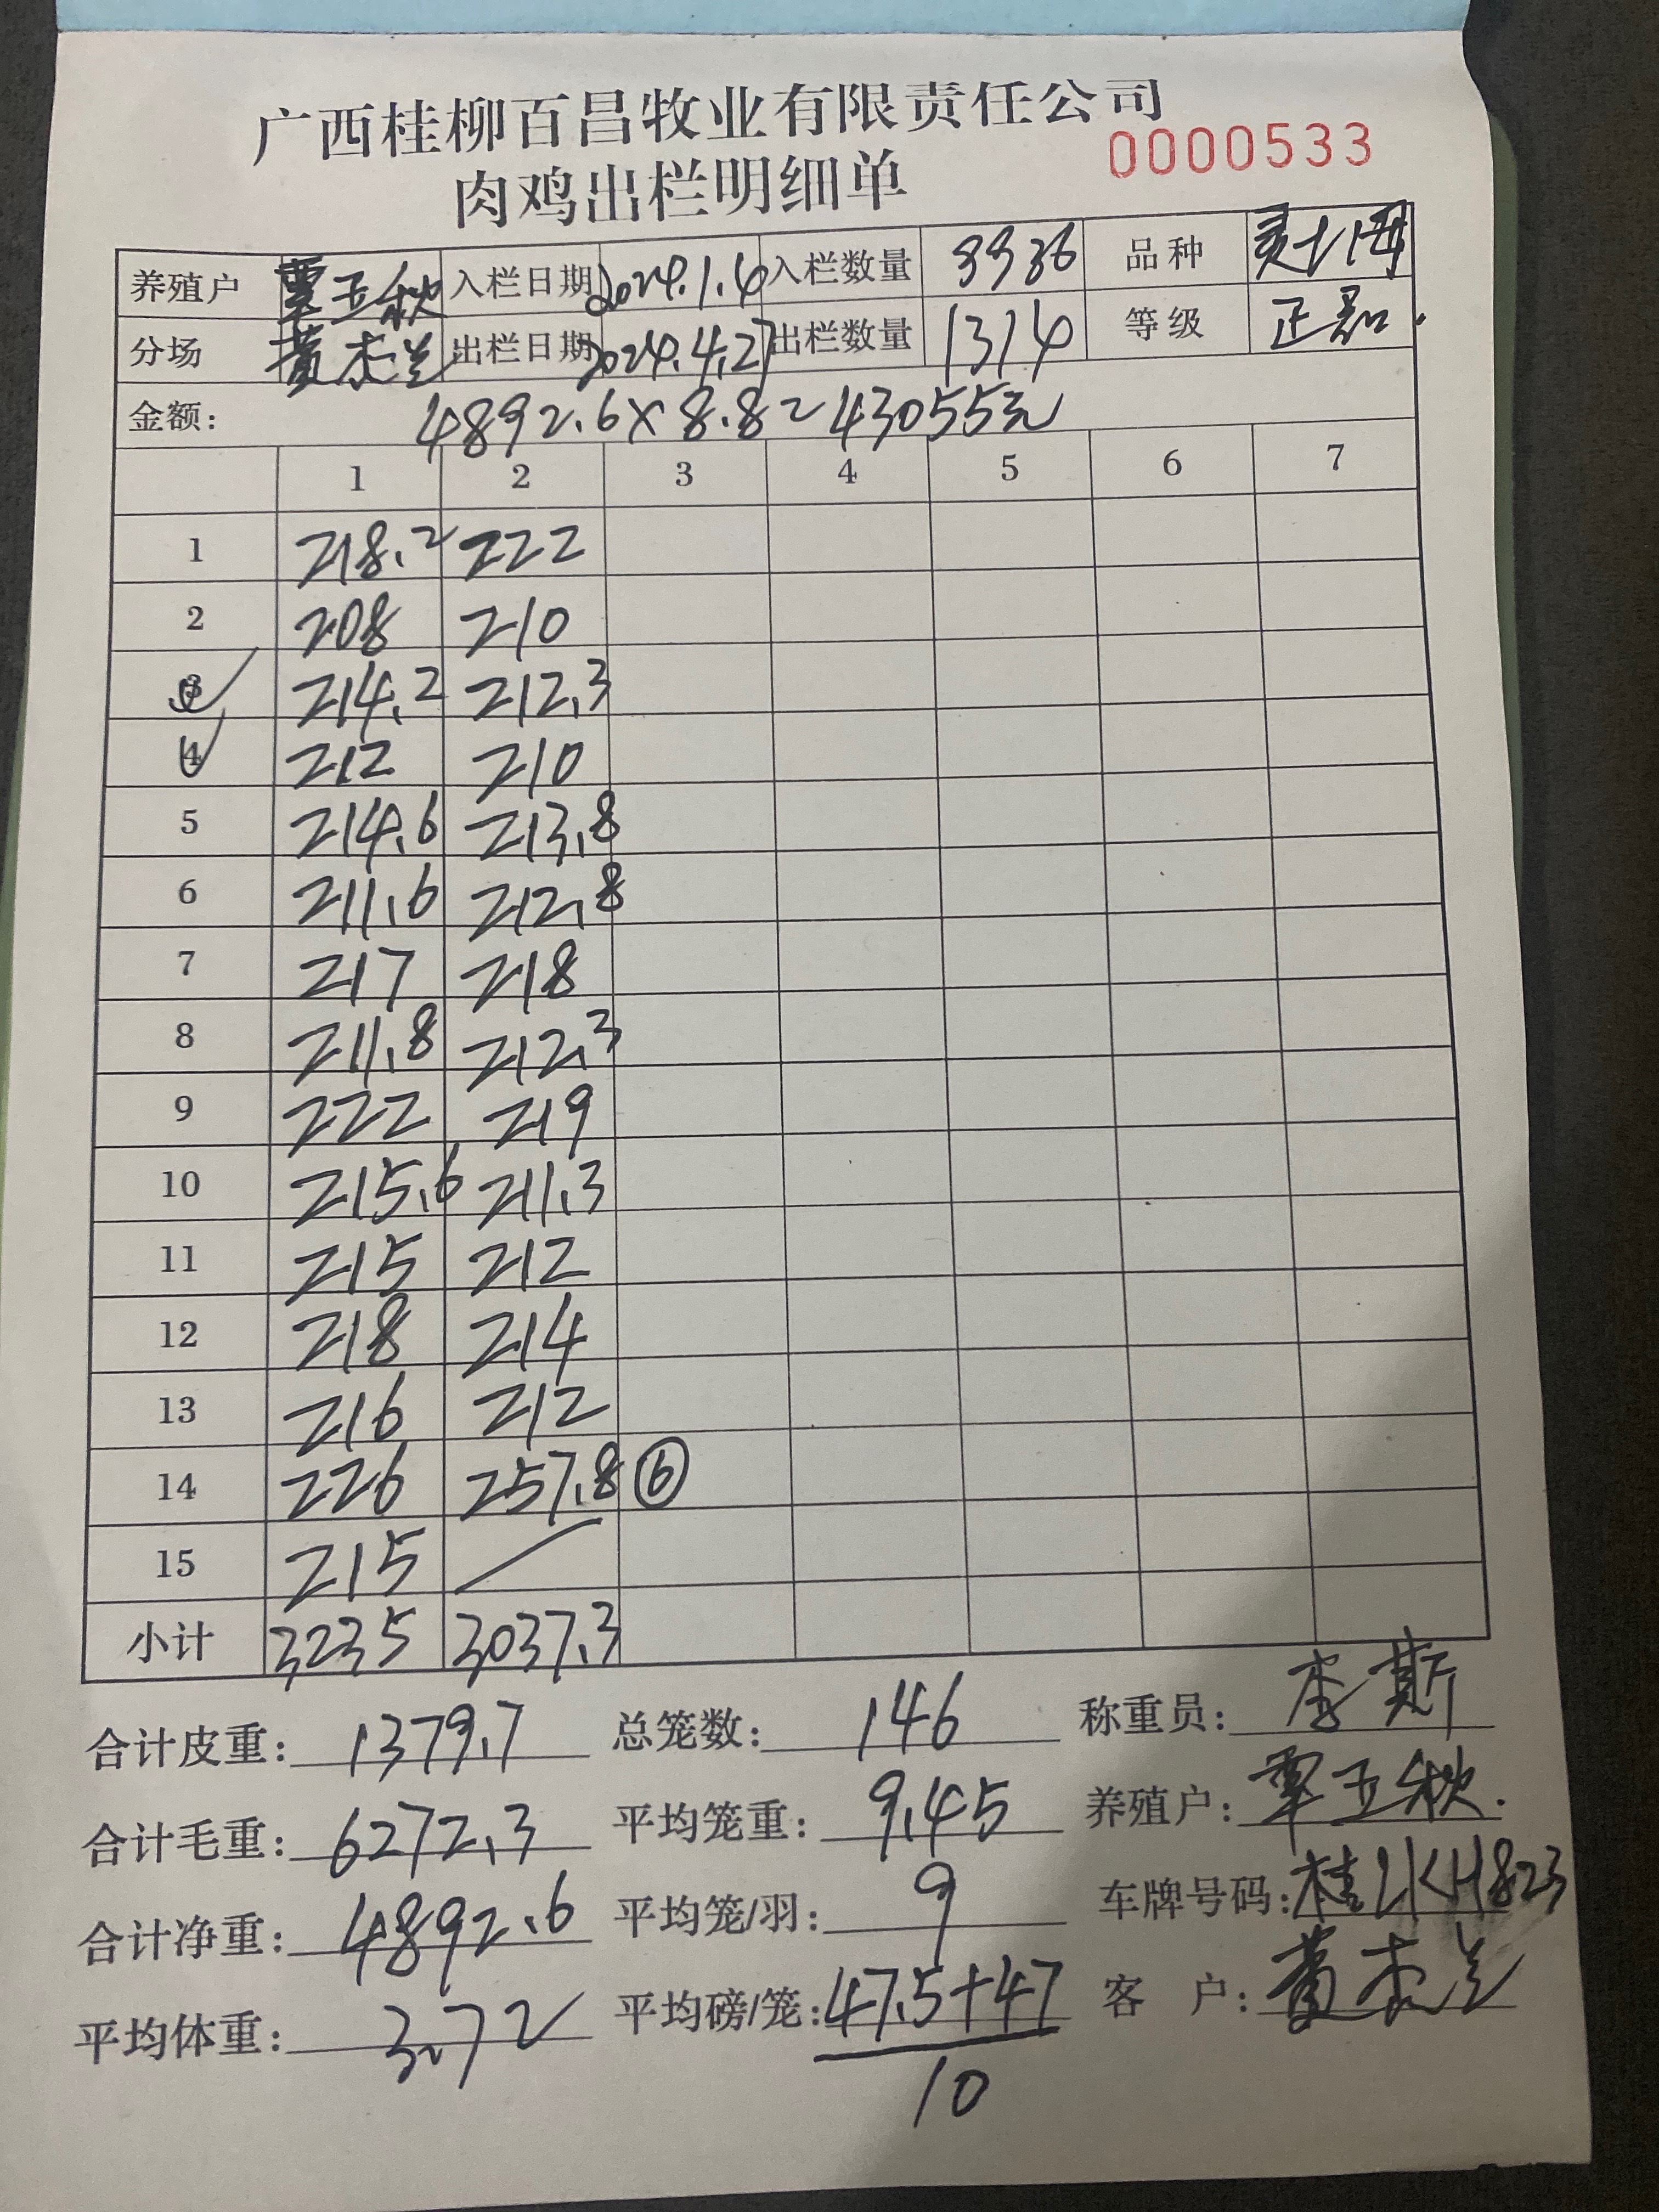 广西桂柳百昌牧业有限责任公司
肉鸡出栏明细单 0000533
养殖户 覃玉秋 入栏日期 2024.1.4 入栏数量 3936 品种
分场 黄木兰 出栏日期 2024.4.27 出栏数量 1314 等级 正品.
金额: 4892.6×8.8=43055元
1 2 3 4 5 6 7
1 218.2 222
2 208 210
3 214.2 212.3
4 212 210
5 214.6 213.8
6 211.6 212.8
7 217 218
8 211.8 212.3
9 222 219
10 215.6 211.3
11 215 212
12 218 214
13 216 212
14 226 257.8 ⑥
15 215
小计 3235 3037.3
合计皮重: 1379.7 总笼数: 146 称重员: 李斯
合计毛重: 6272.3 平均笼重: 9.45 养殖户: 覃玉秋.
合计净重: 4892.6 平均笼/羽: 9 车牌号码:
平均体重: 3.72 平均磅/笼: 47.5+47 客户: 黄木兰
10